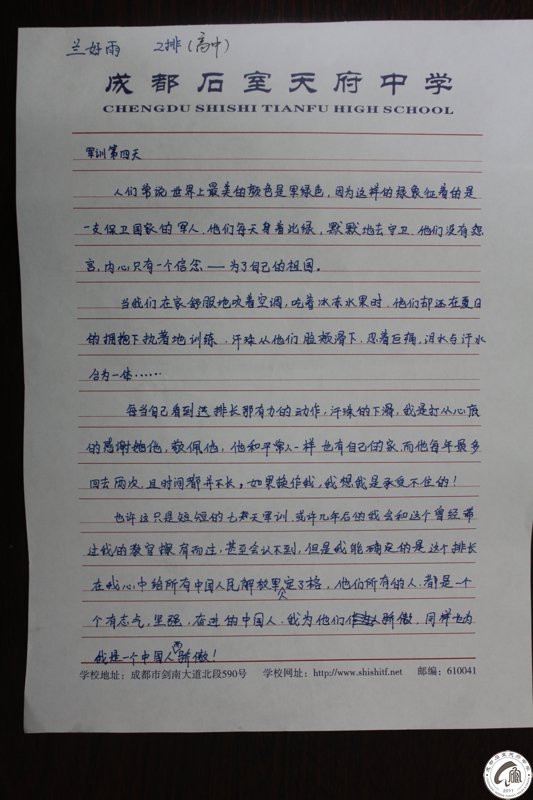 兰好雨 2排(高中)
成都石室天府中学
CHENGDU SHISHI TIANFU HIGH SCHOOL
军训第四天
人们常说世界上最美的颜色是军绿色,因为这样的绿象征着的是
一支保卫国家的军人,他们每天身着此绿,默默地去守卫,他们没有怨
言,内心只有一个信念——为了自己的祖国。
当我们在家舒服地吹着空调,吃着冰冻水果时,他们却还在夏日
的拥抱下执著地训练,汗珠从他们脸颊滑下,忍着巨痛,泪水与汗水
合为一体……
每当自己看到选排长那有力的动作,汗珠的下滑,我是打从心底
的感谢他,敬佩他,他和平常人一样也有自己的家,而他每年最多
回去两次,且时间都并不长,如果换作我,我想我是承受不住的!
也许这只是短短的七天军训,或许几年后的我会和这个曾经带
过我的教官擦肩而过,甚至会认不到,但是我能确定的是这个排长
在我心中给所有中国人民解放军定了格,他们所有的人,都是一个
个有志气,坚强,奋进的中国人,我为他们骄傲,同样也为
我是一个中国人而骄傲!
学校地址:成都市剑南大道北段590号 学校网址:http://www.shishitf.net 邮编:610041
2011